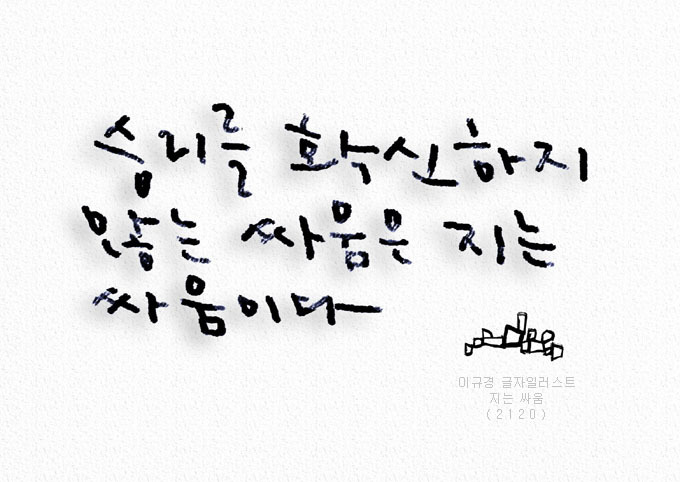 승리를 확신하지
않는 싸움은 지는
싸움이다
이규경 글자일러스트
지는 싸움
(2120)